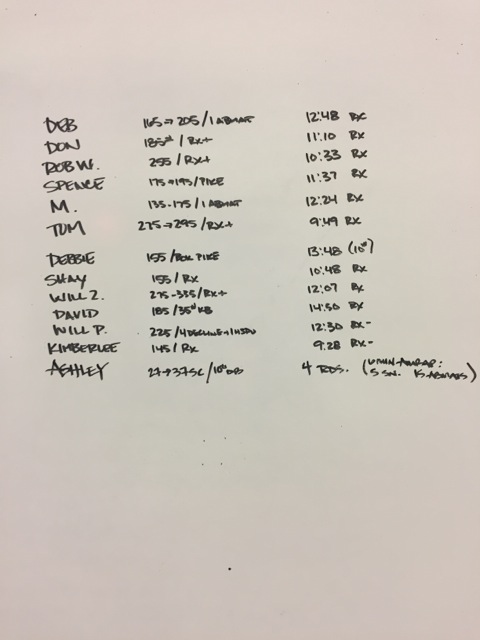 DEB 165→205/1 ABMAT 12:48 RX
DON 185#/RX+ 11:10 RX
ROB W. 255/RX+ 10:33 RX
SPENCE 175→195/PIKE 11:37 RX
M. 135-175/1 ABMAT 12:24 RX
TOM 275→295/RX+ 9:49 RX
DEBBIE 155/BOX PIKE 13:48 (10#)
SHAY 155/RX 10:48 RX
WILL Z. 275-335/RX+ 12:07 RX
DAVID 185/35# KB 14:50 RX
WILL P. 225/4 DECLINE→1 HSPU 12:30 RX-
KIMBERLEE 145/RX 9:28 RX-
ASHLEY 27→37 SC/10# DB 4 RDS. (AMRAP:
5 SN. 15 ABMATS)